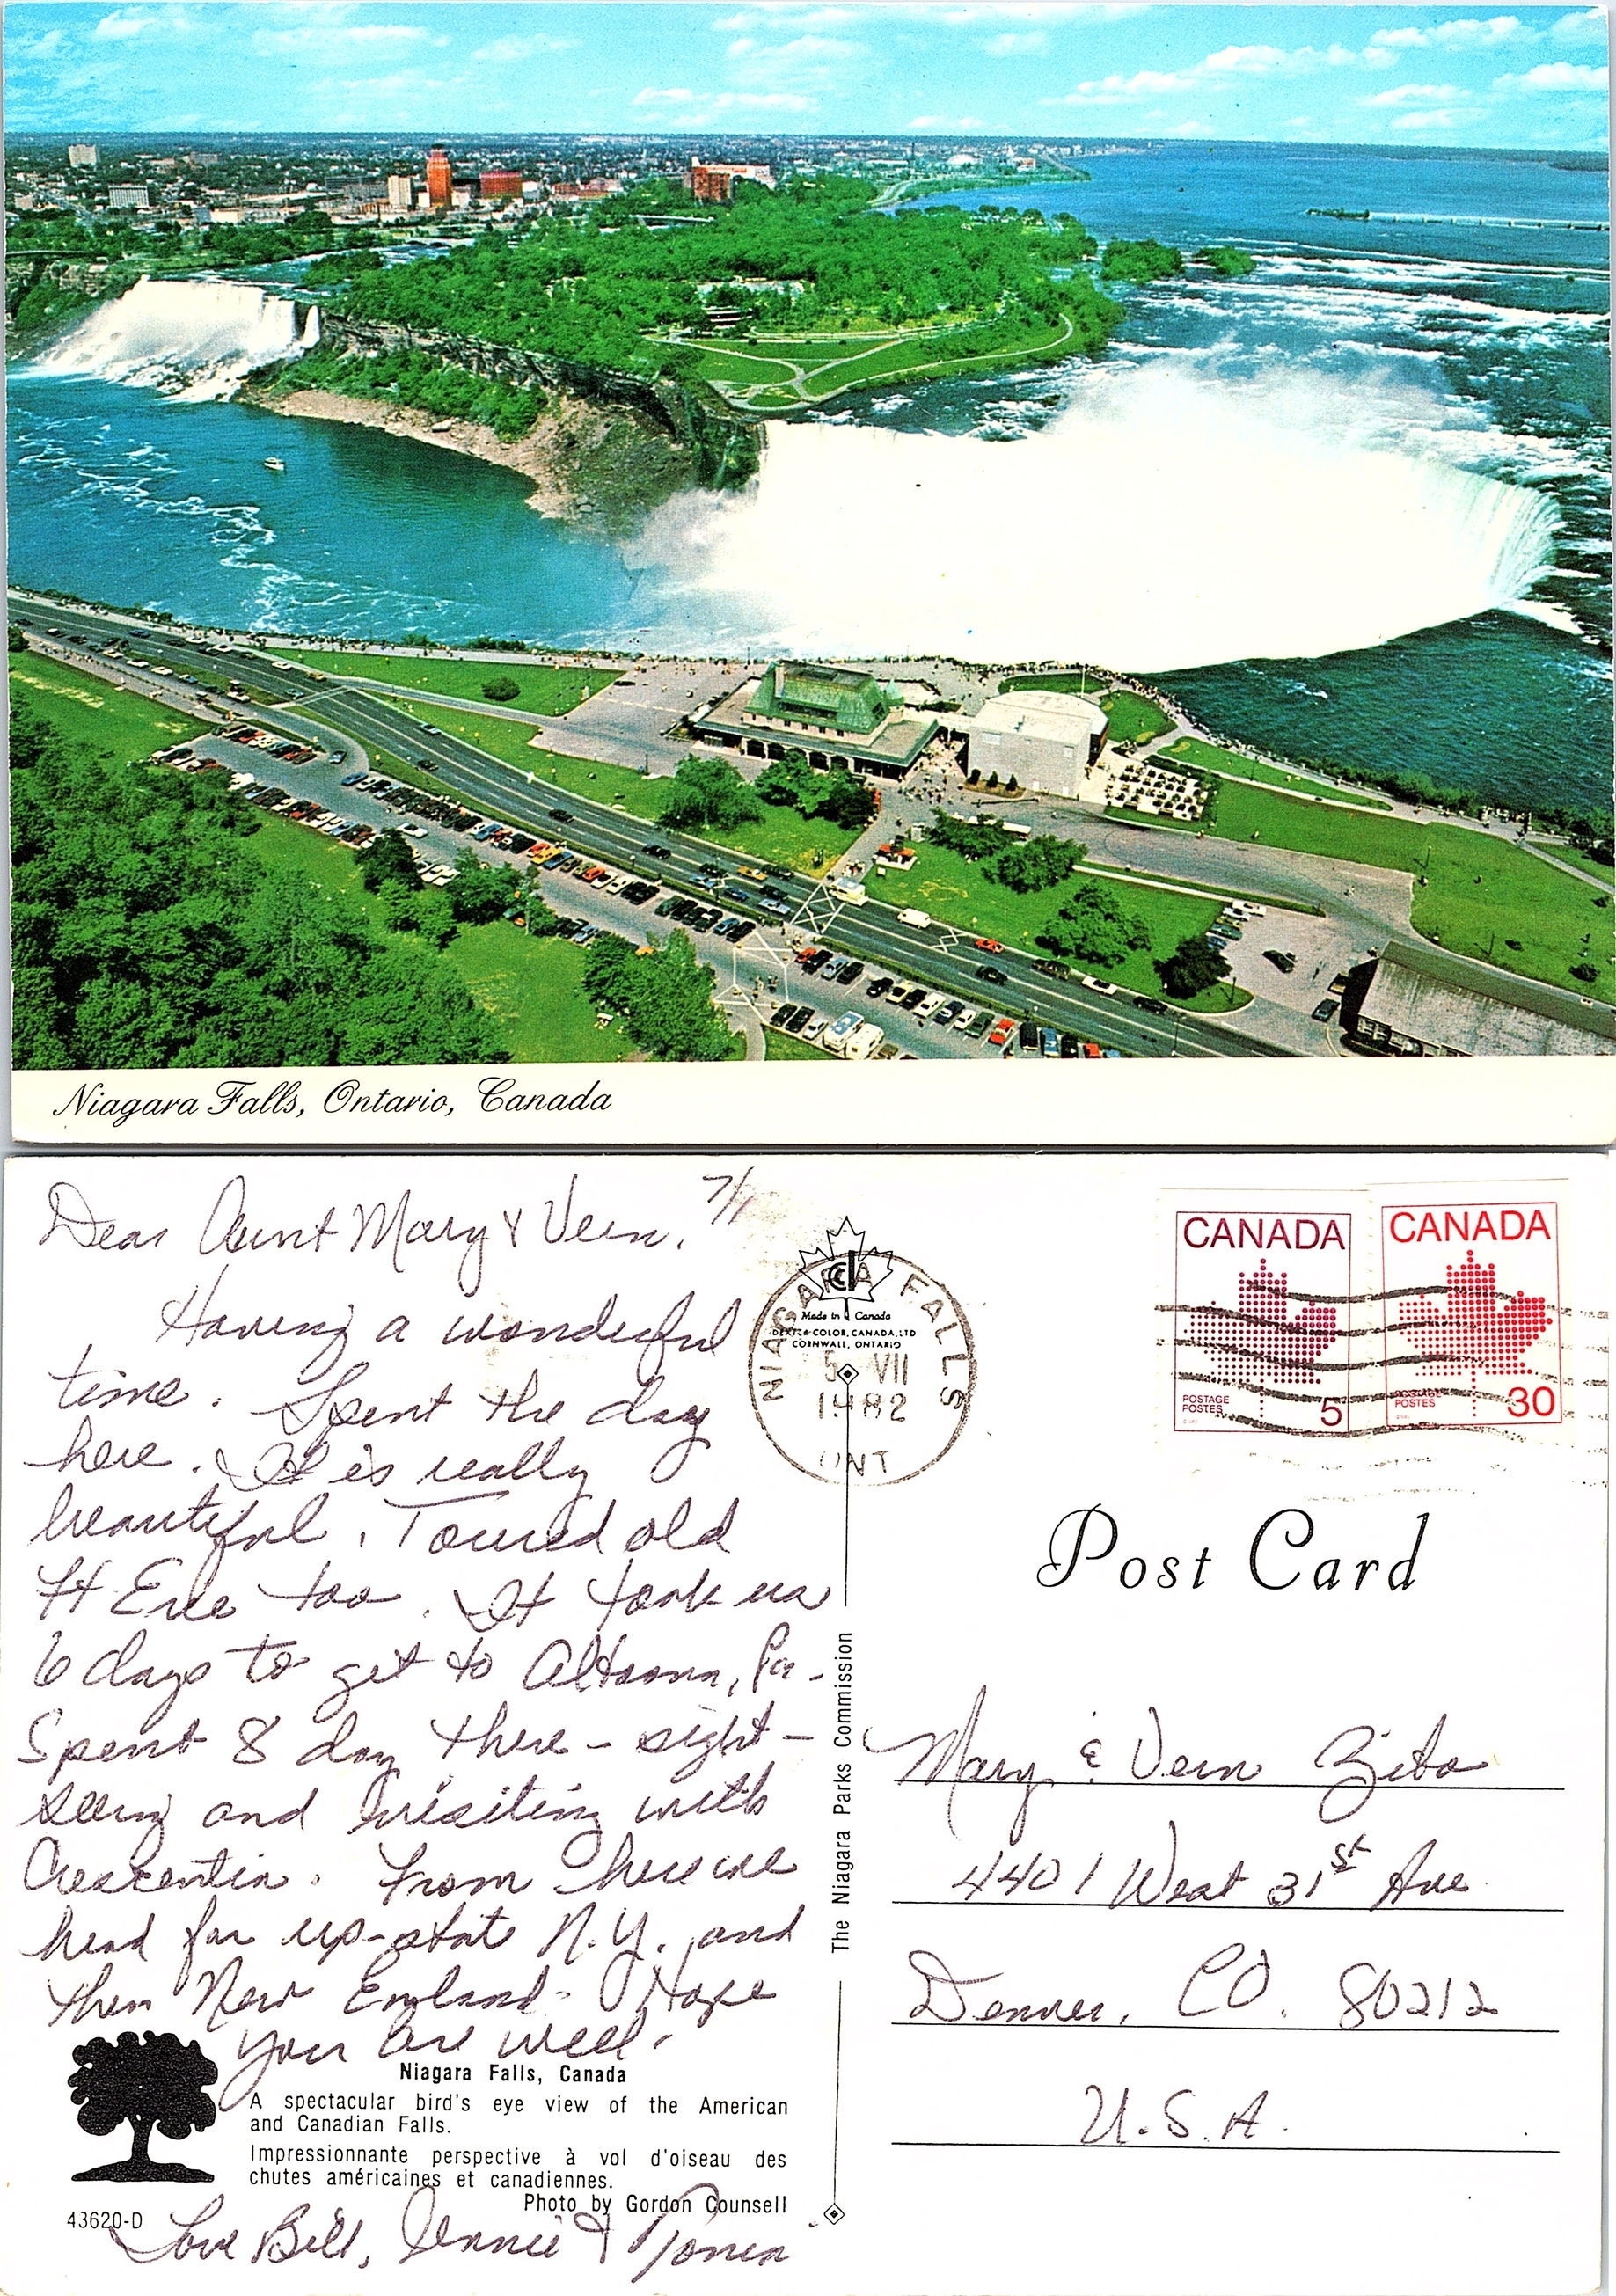 Niagara Falls, Ontario, Canada
7/1
Dear Aunt Mary & Vern,
Having a wonderful
time. Spent the day
here. It is really
beautiful. Toured old
Ft Erie too. It took us
6 days to get to Altoona, Pa.
Spent 8 day there - sight-
seeing and visiting with
Crescentia. From here we
head for up-state N.Y. and
then New England. Hope
you are well.
Niagara Falls, Canada
A spectacular bird's eye view of the American
and Canadian Falls.
Impressionnante perspective à vol d'oiseau des
chutes américaines et canadiennes.
Photo by Gordon Counsell
43620-D
Love Bill, Jennie &
Made in Canada
DEXTER COLOR, CANADA, LTD
CORNWALL, ONTARIO
NIAGARA FALLS
5 VII
1982
ONT
The Niagara Parks Commission
CANADA
POSTAGE
POSTES
5
CANADA
POSTAGE
POSTES
30
Post Card
Mary & Vern Zito
4401 West 31st Ave
Denver, CO. 80212
U.S.A.